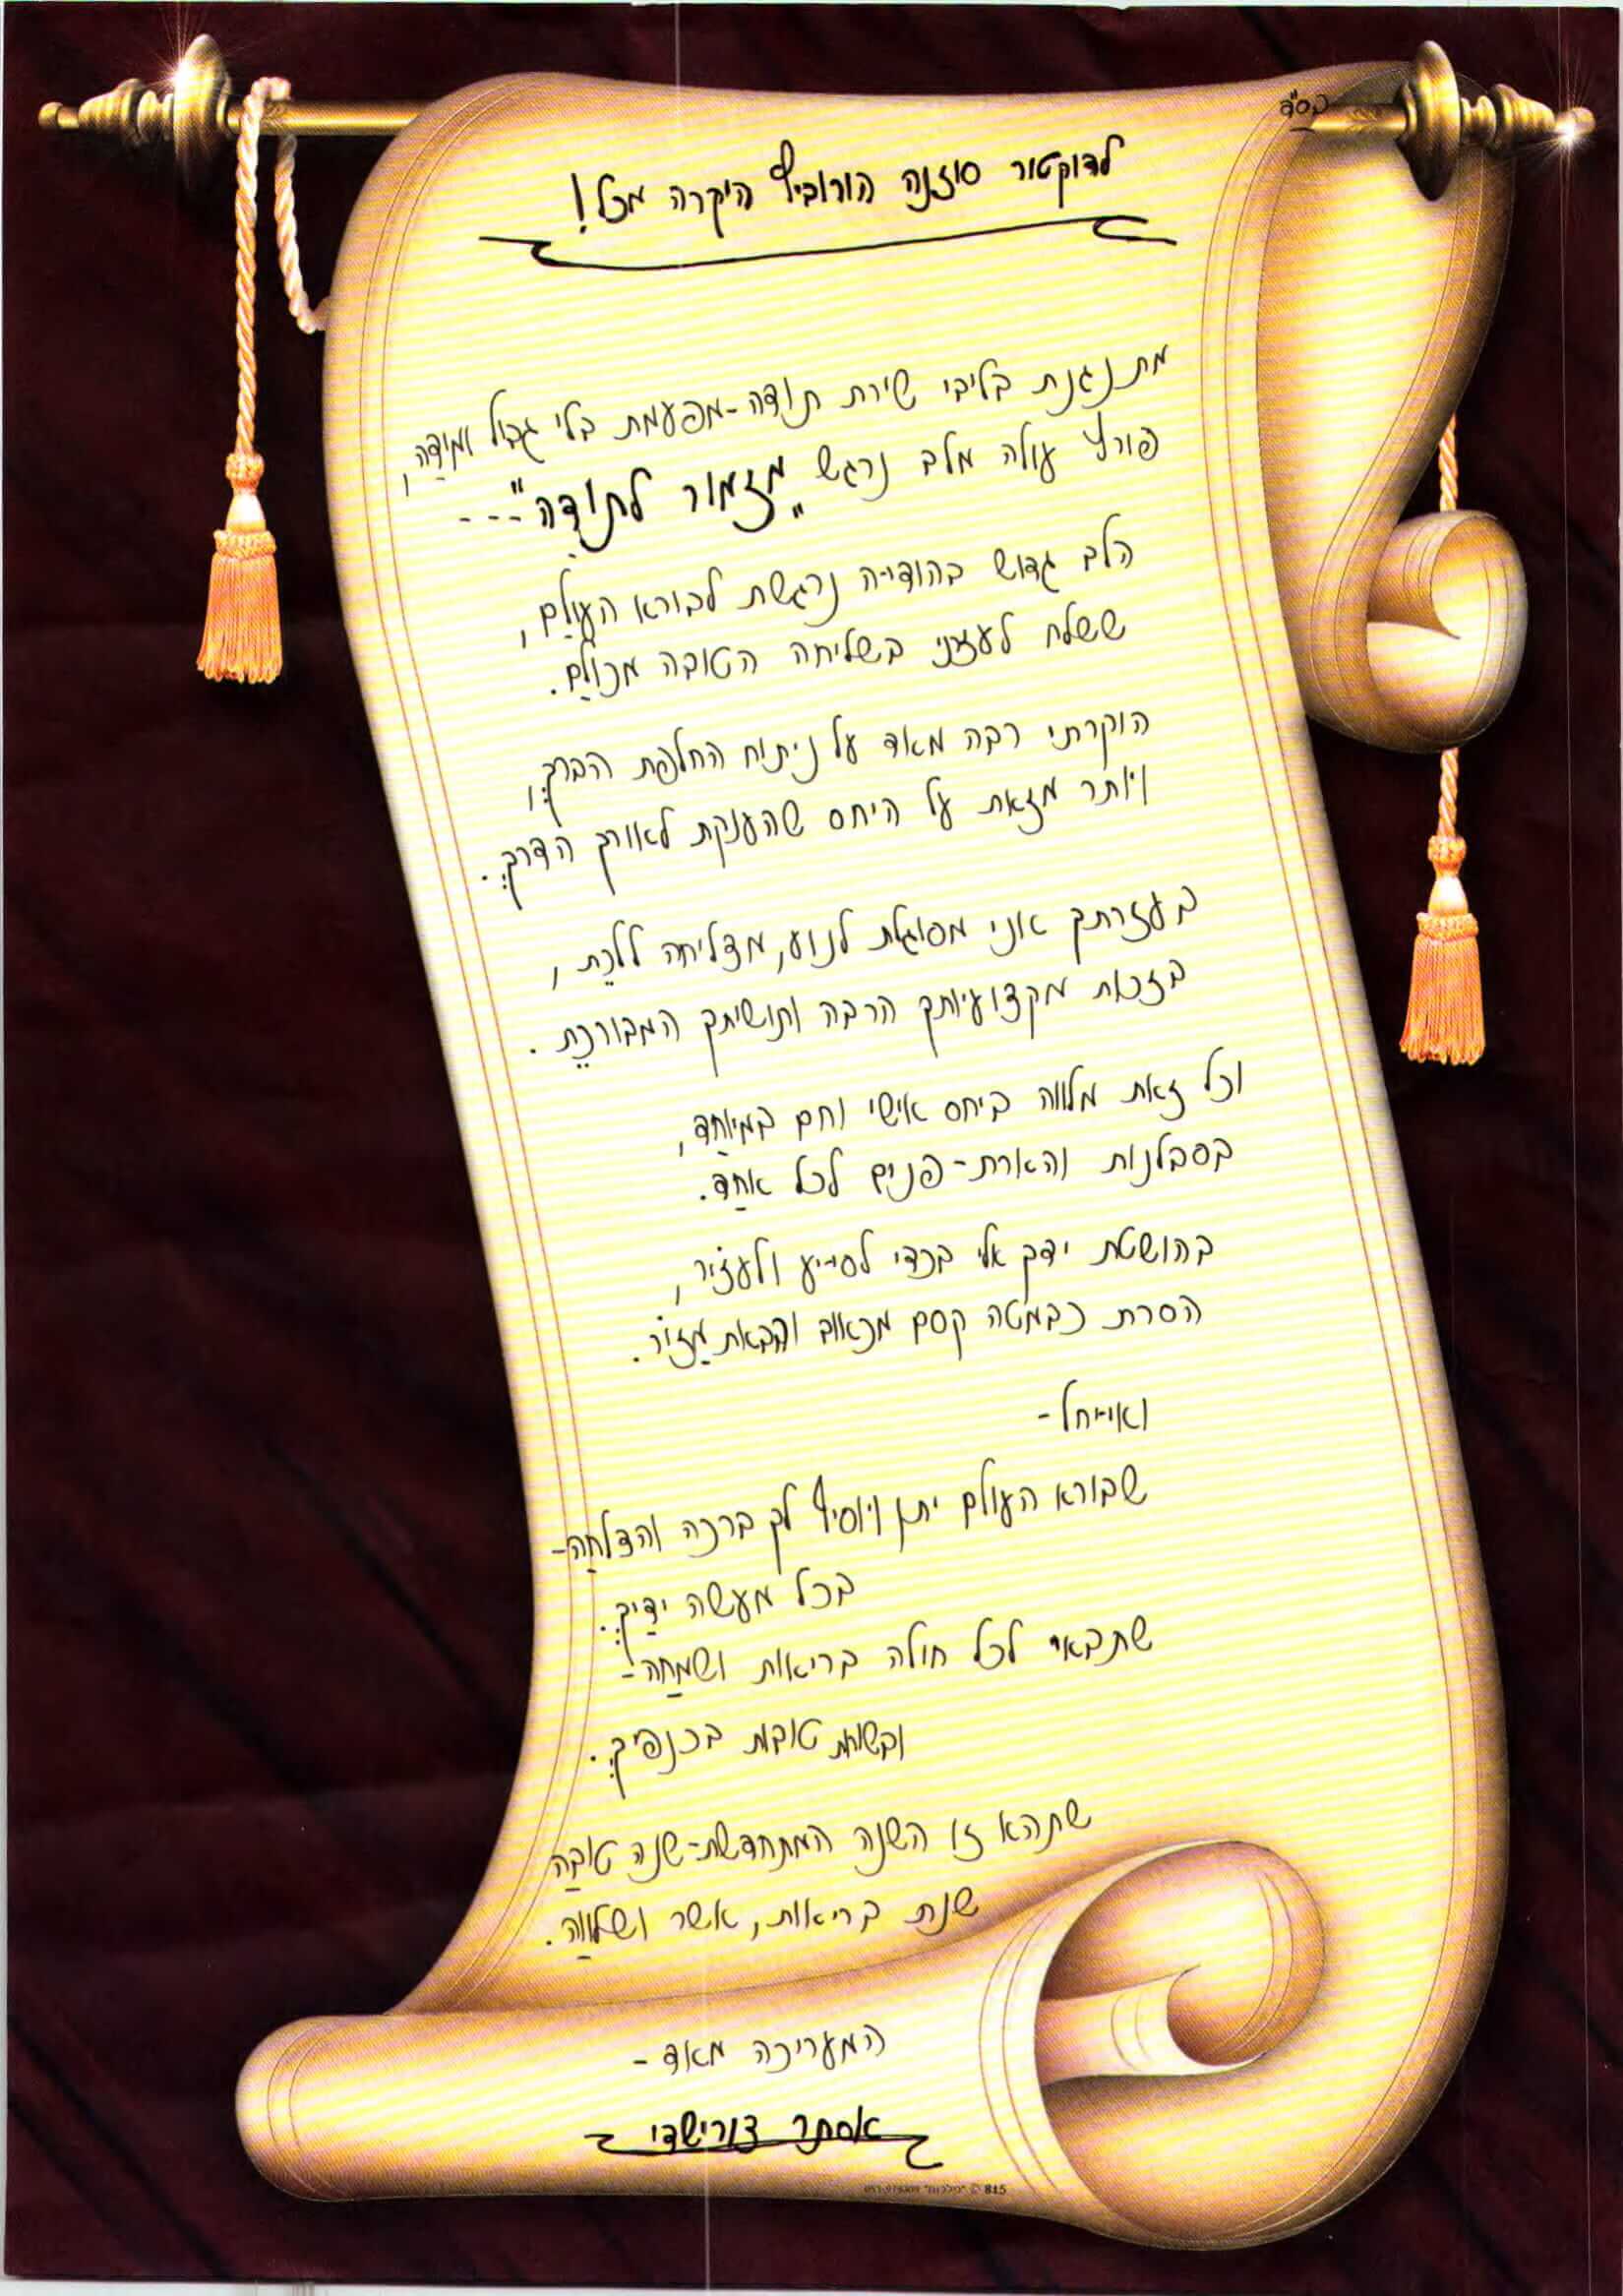 בס"ד
לדוקטור סוזנה הורוביץ היקרה מכל!
מתנגנת בליבי שירת תודה-מפעמת בלי גבול ומידָה,
פורץ עולה מלב נרגש "מִזמור לתודָה"---
הלב גדוש בהודייה נרגשת לבורא העולָם,
ששלח לעזרני בשליחה הטובה מכולָם.
הוקרתי רבה מאוד על ניתוח החלפת הברֶךְ,
ויותר מזאת על היחס שהענקת לאורך הדרֶךְ.
בעזרתך אני מסוגלת לנוע, מצליחה ללכֶת,
בזכות מקצועיותך הרבה ותושיתך המבורכֶת.
וכל זאת מלווה ביחס אישי וחם במיוחָד,
בסבלנות והארת-פנים לכל אחָד.
בהושטת ידך אלי בכדי לסייע ולעזור,
הסרת כבמטה קסם מכאוב והבאת מָזוֹר.
ואייחל-
שבורא העולם יתן ויוסיף לך ברכה והצלחָה-
בכל מעשה ידַיִךְ.
שתבאי לכל חולה בריאות ושמחָה-
ובשורות טובות בכנפיִךְ.
שתהא זו השנה המתחדשת-שנה טובָה
שנת בריאות, אושר ושלווָה.
המעריכה מאוד-
אסתר צורישדי
815 ©